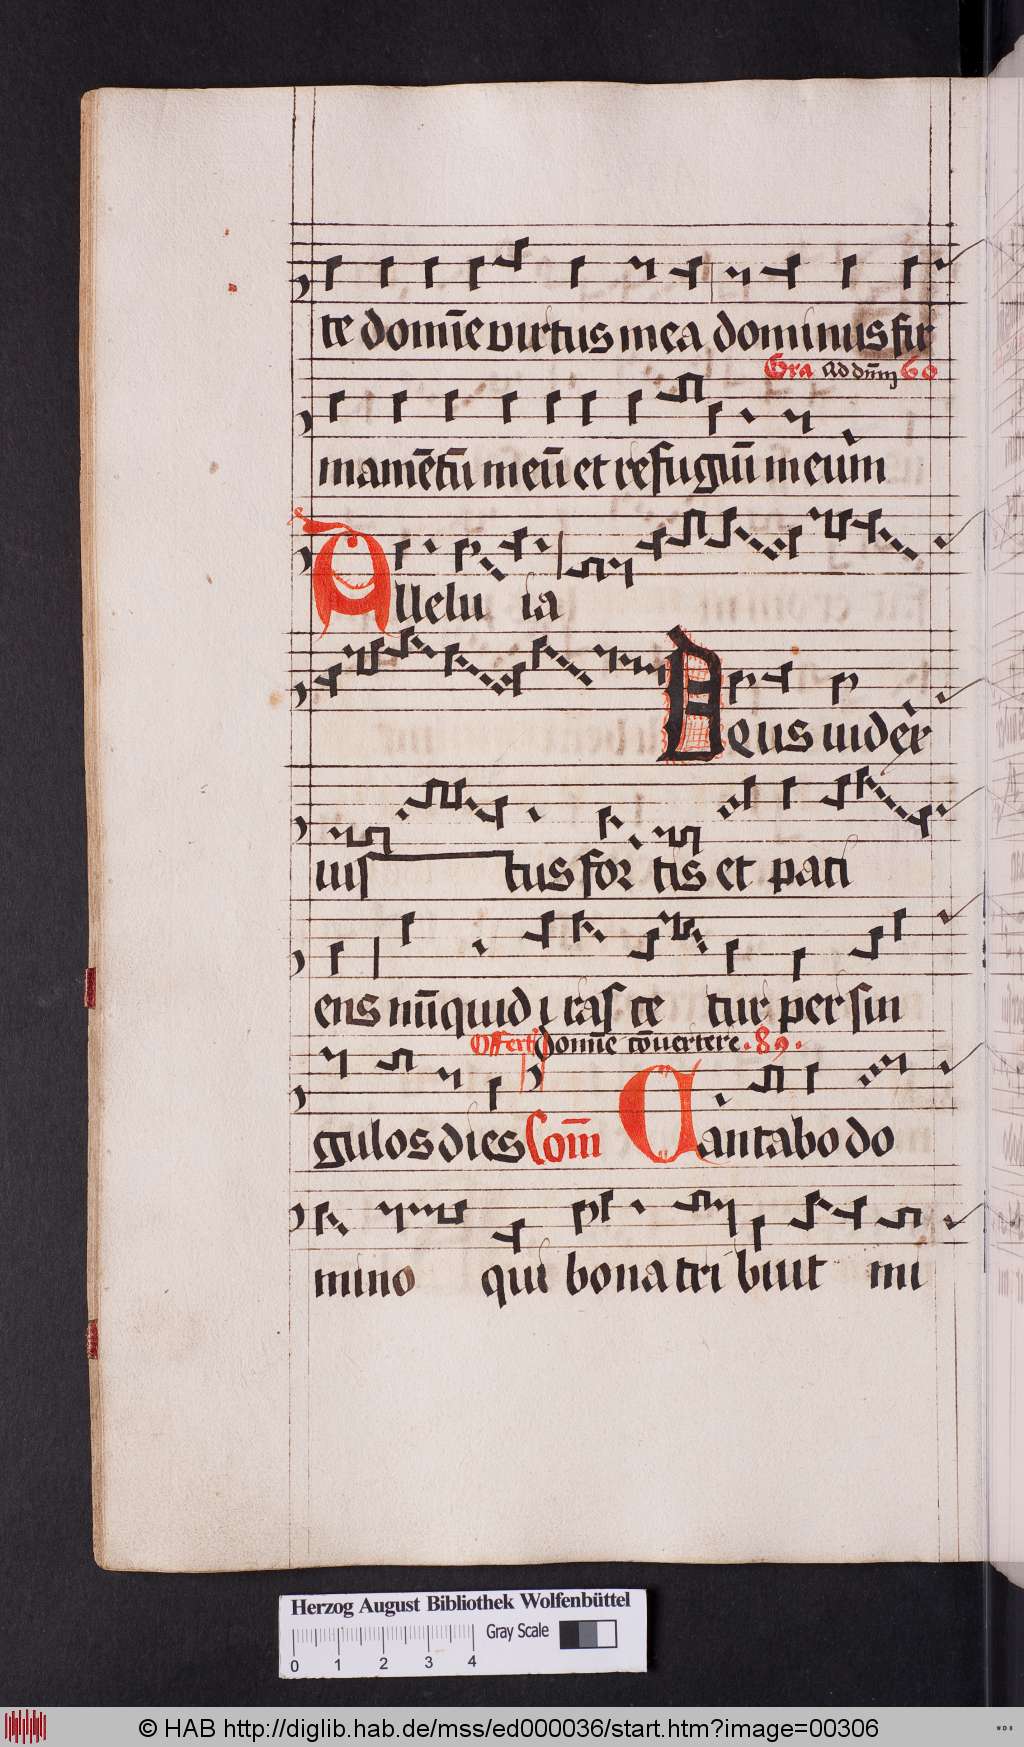 te domīe virtus mea dominus fir
Gra Ad dn̄m 60
mamētū meū et refugiū meum
Allelu ia
Deus iudex
ius tus for tis et pati
ens nūquid i ras ce tur per sin
Offert domīe cōuertere .89.
gulos dies Com̄ Cantabo do
mino qui bona tri buit mi
Herzog August Bibliothek Wolfenbüttel
Gray Scale
0 1 2 3 4
© HAB http://diglib.hab.de/mss/ed000036/start.htm?image=00306